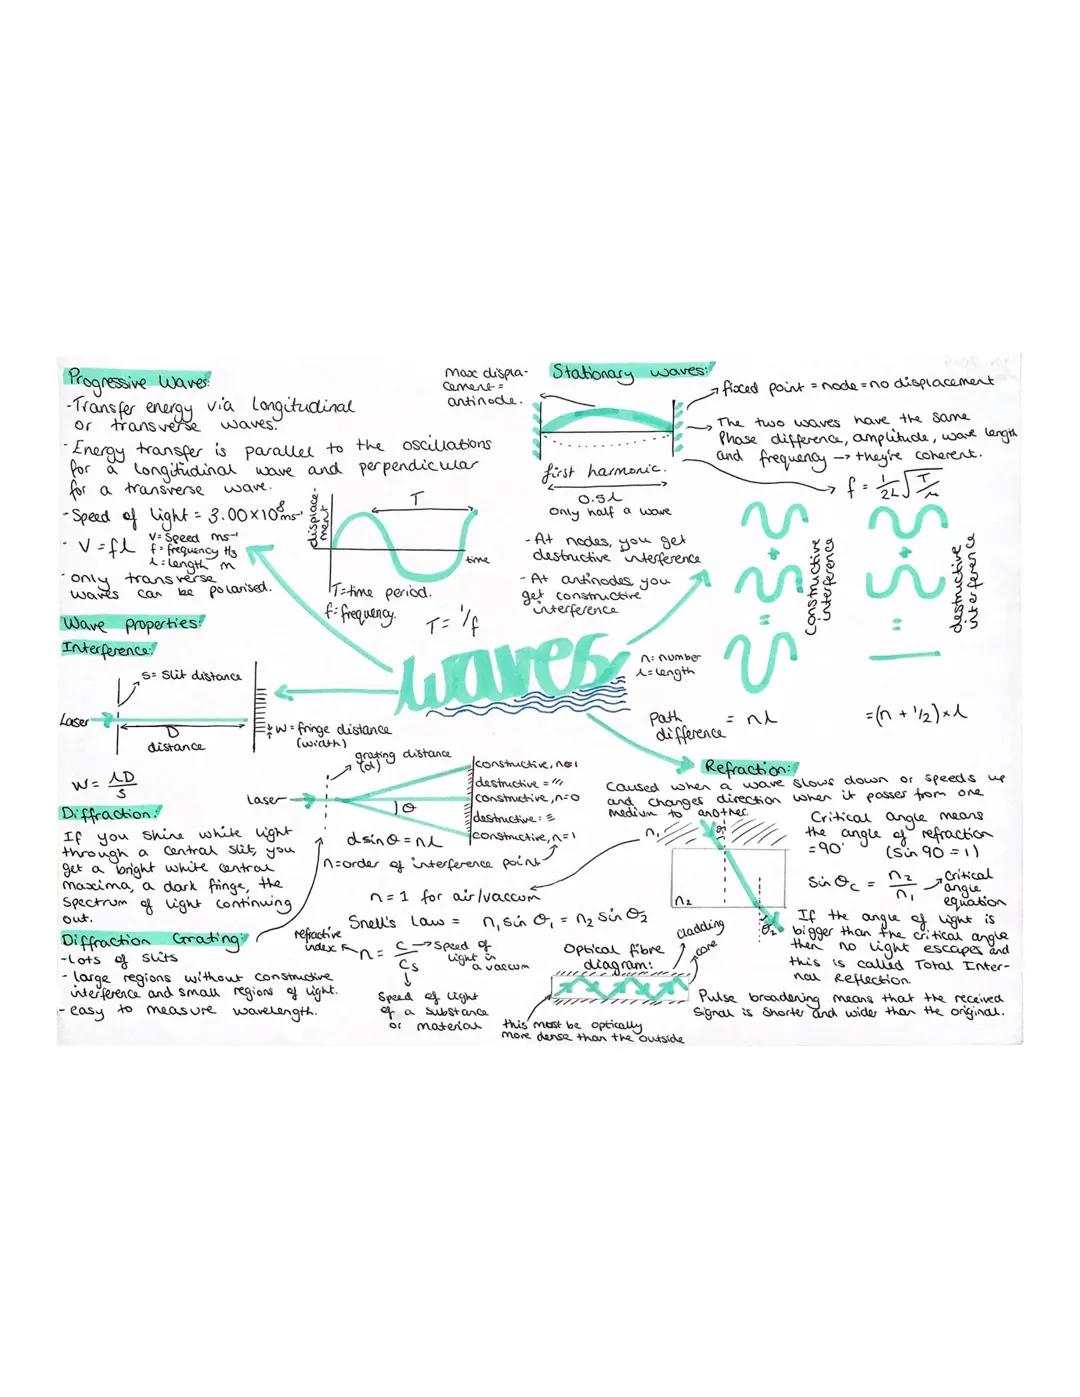 Progressive Waves:
-Transfer energy via longitudinal
or transverse waves.
-Energy transfer is parallel to the oscillations
for a longitudinal wave and perpendicular
for a transverse wave.
-Speed of light = 3.00×10⁸ms⁻¹
· V = fλ
V= Speed ms⁻¹
f = frequency Hz
λ = length m
· only transverse
waves can be polarised.
displace-
ment
T
time
T=time period.
f=frequency.
T= 1/f
max displa-
cement =
antinode.
Stationary waves:
fixed point = node = no displacement
The two waves have the same
Phase difference, amplitude, wave length
and frequency → they're coherent.
first harmonic.
0.5λ
only half a wave
f = 1/2L √T/μ
-At nodes, you get
destructive interference
-At antinodes you
get constructive
interference
+
=
Constructive
interference
+
=
destructive
interference
waves
n= number
λ=length
path
difference = nλ
=(n + 1/2)×λ
Wave properties:
Interference:
S= Slit distance
Laser
D
distance
w = fringe distance
(width)
W = λD/S
Diffraction:
If you shine white light
through a central slit, you
get a bright white central
maxima, a dark fringe, the
spectrum of light continuing
out.
Diffraction Grating:
-lots of slits
-large regions without constructive
interference and small regions of light.
-easy to measure wavelength.
grating distance
(d)
Laser
θ
constructive, n=1
destructive =
constructive, n=0
destructive:
constructive, n=1
dsinθ = nλ
n=order of interference point
n = 1 for air/vaccum
Snell's Law = n₁sin θ₁ = n₂ sin θ₂
refractive
index
n = C/Cs
Speed of
light in
a vaccum
Speed of light
of a substance
or material
Refraction:
Caused when a wave slows down or speeds up
and changes direction when it passes from one
medium to another.
n₁
θ₁
n₂
θ₂
Critical angle means
the angle of refraction
= 90° (Sin 90 = 1)
Sin θc = n₂/n₁
Critical
angle
equation
If the angle of light is
bigger than the critical angle
then no light escapes and
this is called Total Inter-
nal Reflection.
Optical fibre
diagram:
cladding
core
this must be optically
more dense than the outside
Pulse broadening means that the received
signal is shorter and wider than the original.